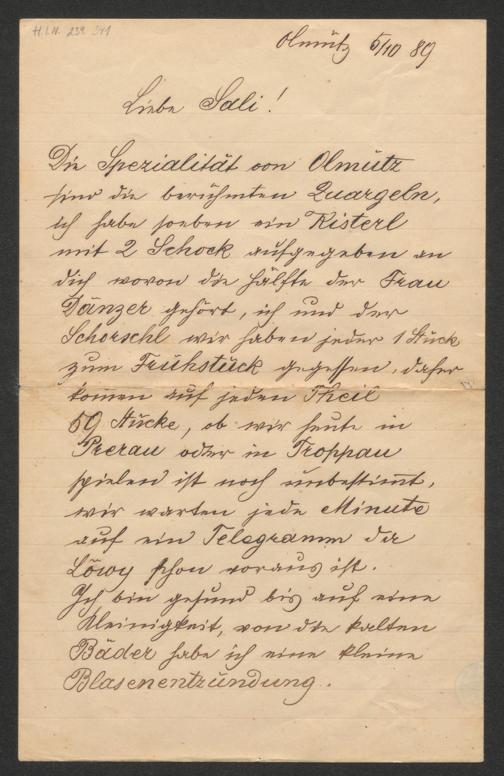 H.I.N. 239 341
Olmütz 5/10 89
Liebe Sali!
Die Spezialität von Olmütz
sind die berühmten Quargeln,
ich habe soeben ein Kisterl
mit 2 Schock aufgegeben an
dich wovon die Hälfte der Frau
Dänzer gehört, ich und der
Schorschl wir haben jeder 1 Stück
zum Frühstück gegessen, daher
kom̅en auf jeden Theil
59 Stücke, ob wir heute in
Prerau oder in Troppau
spielen ist noch unbestim̅t,
wir warten jede Minute
auf ein Telegramm da
Löwy schon voraus ist.
Ich bin gesund bis auf eine
Kleinigkeit, von die kalten
Bäder habe ich eine kleine
Blasenentzündung.